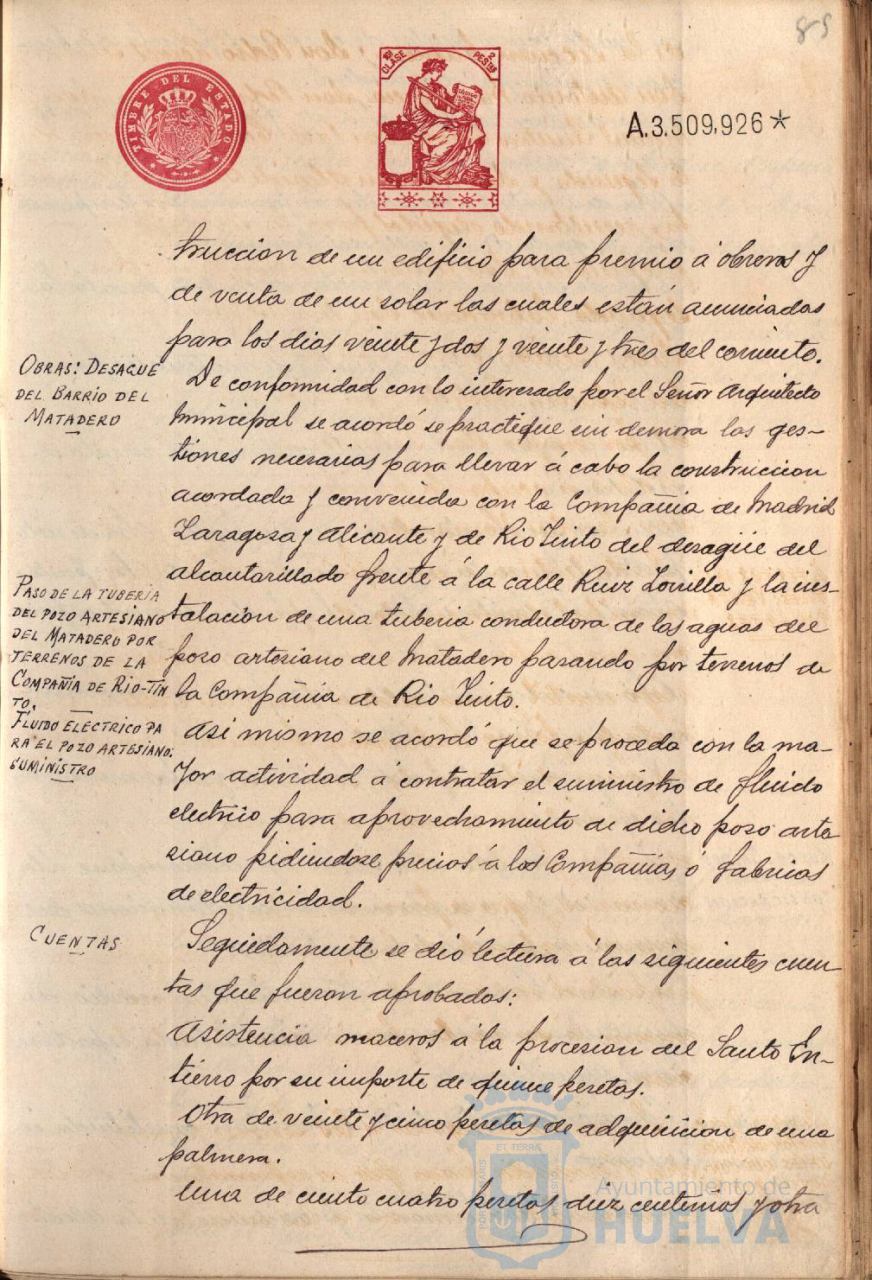 85
TIMBRE DEL ESTADO
10ª CLASE
2 PESTAS
A.3.509,926*
truccion de un edificio para premio á obreros y
de venta de un solar las cuales están anunciadas
para los dias veinte y dos y veinte y tres del corriente.
OBRAS: DESAGUE
DEL BARRIO DEL
MATADERO
De conformidad con lo interesado por el Señor Arquitecto
Municipal se acordó se practique sin demora las ges-
tiones necesarias para llevar á cabo la construccion
acordada y convenida con la Compañia de Madrid
Zaragoza y Alicante y de Rio Tinto del desagüe del
alcantarillado frente á la calle Ruiz Zorrilla y la ins-
talacion de una tuberia conductora de las aguas del
poso artesiano del Matadero pasando por terrenos de
la Compañia de Rio Tinto.
PASO DE LA TUBERIA
DEL POZO ARTESIANO
DEL MATADERO POR
TERRENOS DE LA
COMPAÑIA DE RIO-TIN
TO.
FLUIDO ELECTRICO PA
RA EL POZO ARTESIANO:
SUMINISTRO
Asi mismo se acordó que se proceda con la ma-
yor actividad á contratar el suministro de fluido
electrico para aprovechamiento de dicho poso arte
siano pidiendose precios á las Compañias ó fabricas
de electricidad.
CUENTAS
Seguidamente se dió lectura á las siguientes cuen-
tas que fueron aprobadas:
Asistencia maceros á la procesion del Santo En-
tierro por su importe de quince pesetas.
Otra de veinte y cinco pesetas de adquisicion de una
palmera.
Una de ciento cuatro pesetas diez centimos y otra
Ayuntamiento de
HUELVA